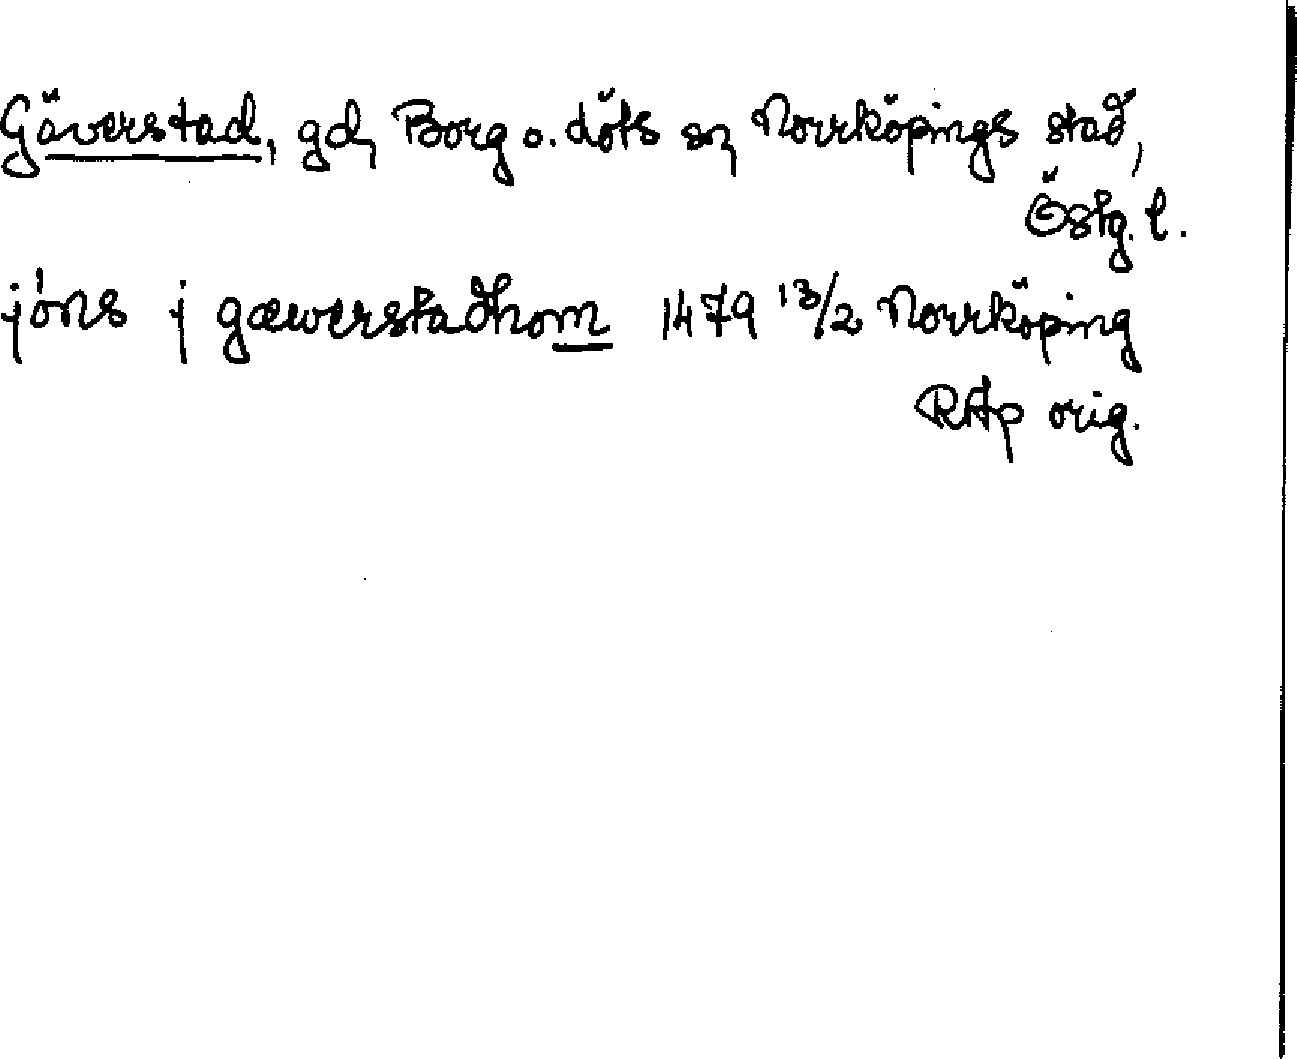 Gäverstad, gd, Borg o. Löts sn, Norrköpings stad,
Östg. l.
jöns j gæwerstadhom 1479 13/2 Norrköping
RAp orig.